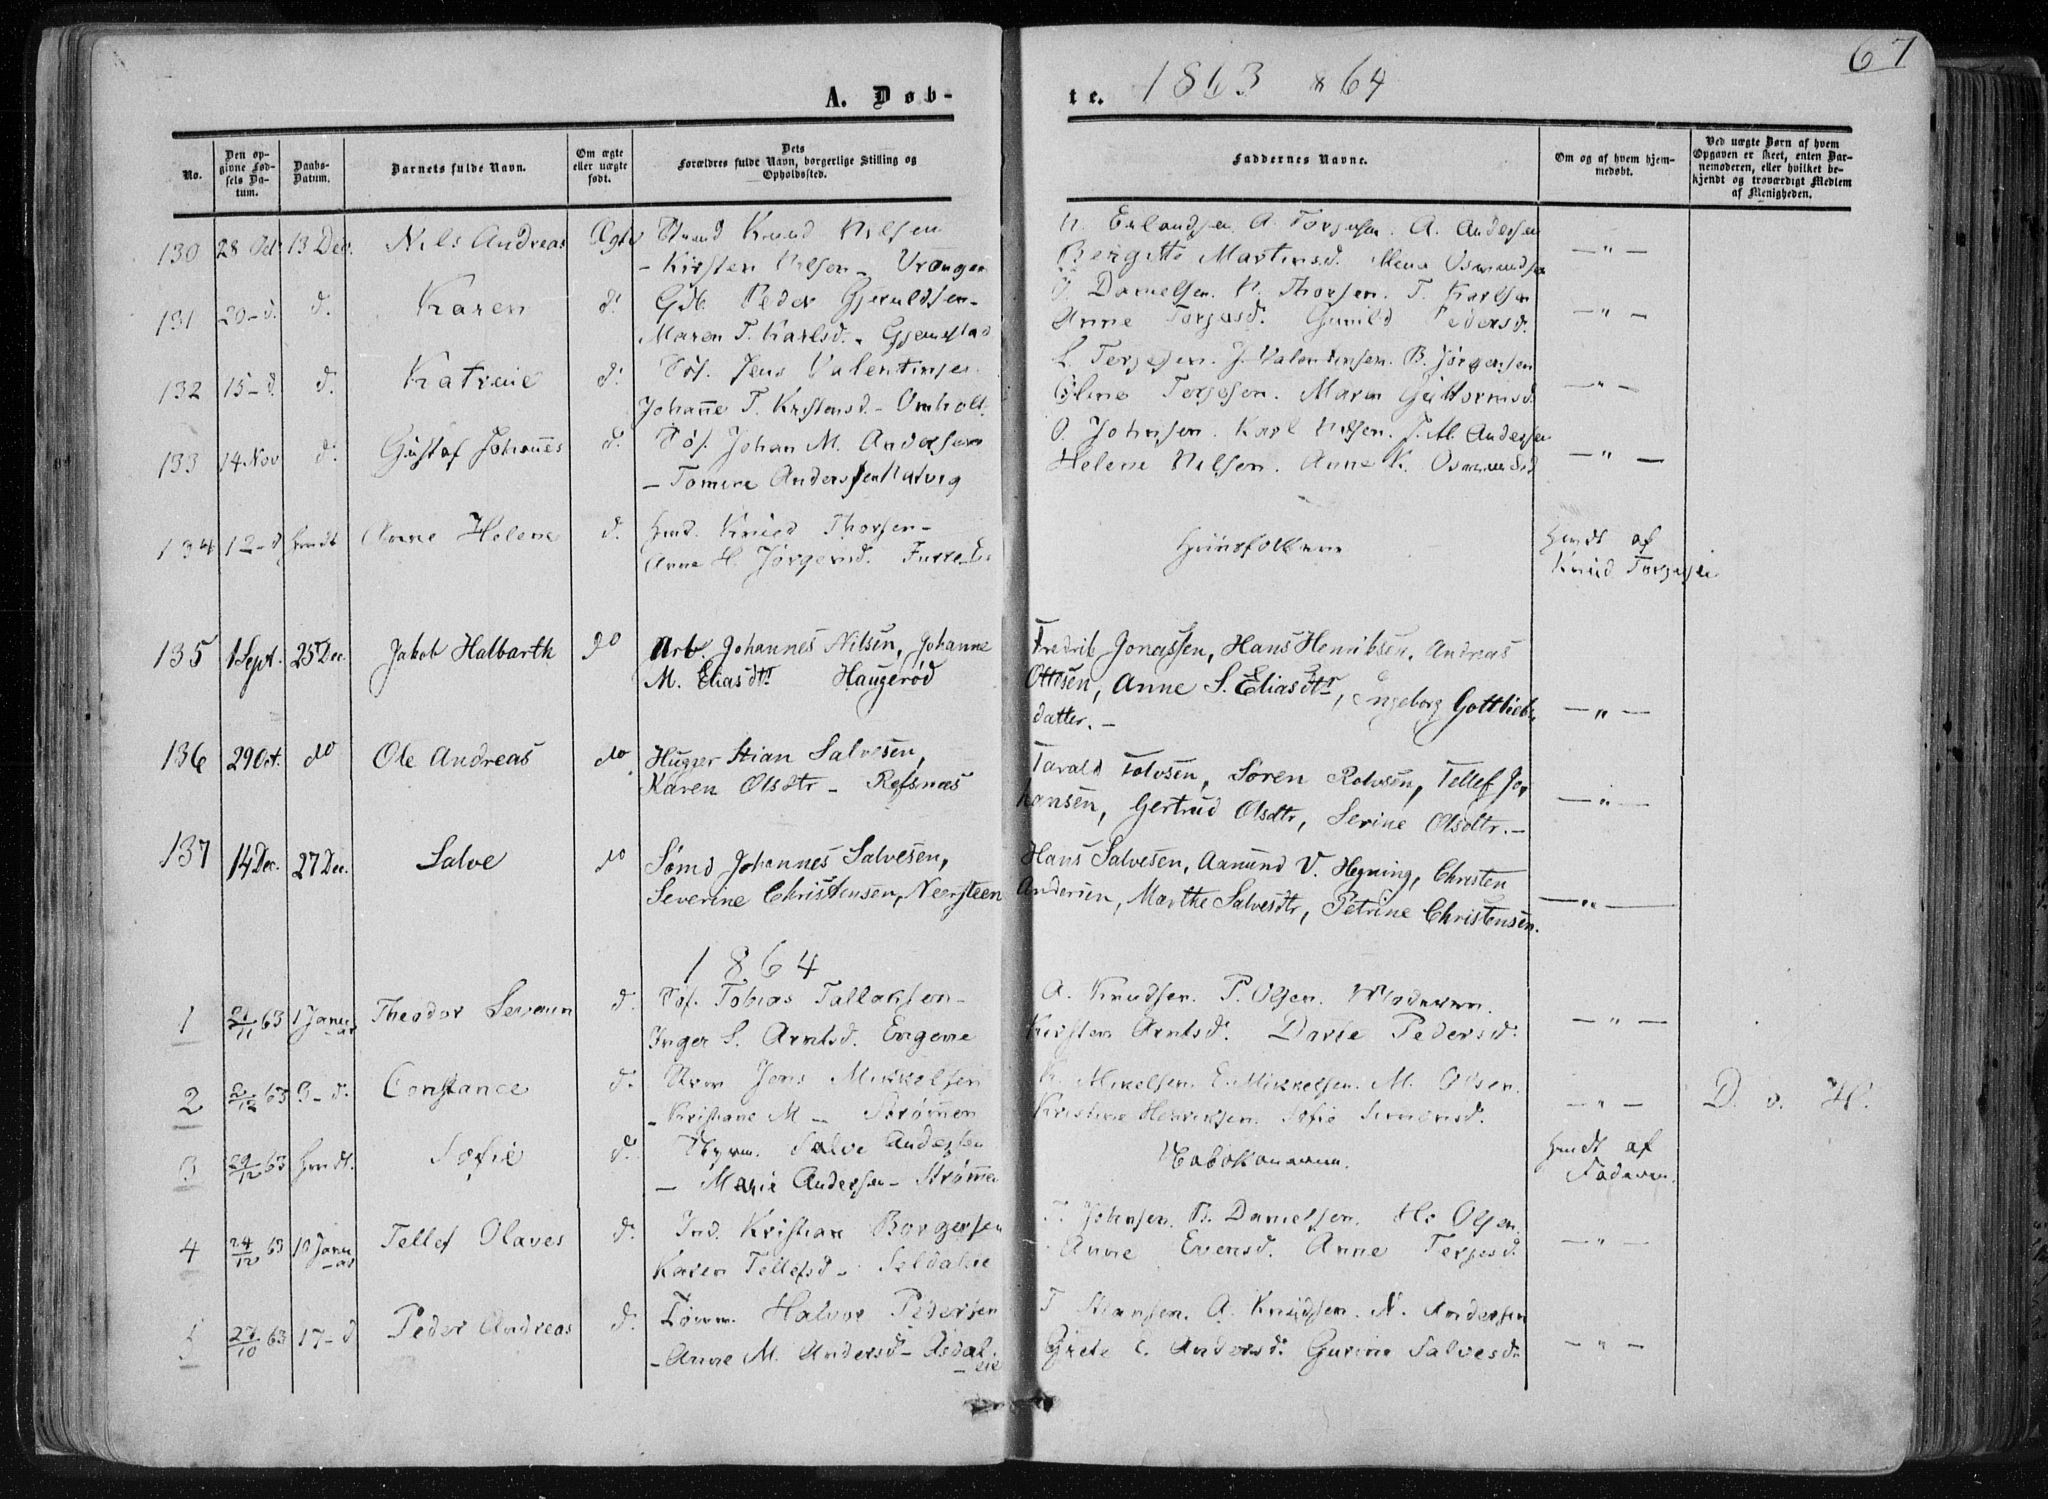 67
A. Døb-
te. 1863 & 64
No.
Den op-
givne Fød-
sels Da-
tum.
Daabs-
Datum.
Barnets fulde Navn.
Om ægte
eller uægte
født.
Dets
Forældres fulde Navn, borgerlige Stilling og
Opholdssted.
Faddernes Navne.
Om og af hvem hjem-
medøbt.
Ved uægte Børn af hvem
Opgaven er skeet, enten Bar-
nemoderen, eller hvilket be-
kjendt og troværdigt Medlem
af Menigheden.
130 28 Oct 13 Dec. Nils Andreas Ægte Knud Nilsen
- Kirsten Nilsen - Vrangen
N. Erlandsen A. Torjusen. A. Andersen
Bergitte Martinsd. Osmundsen
— " —
131 20 - d. d. Karen d. Gdb. Peder Gjeruldsen -
Maren T. Karlsd. - Gjennestad
Danielsen. N. Thorsen. T. Karlsen
Anne Torjusd. Gunild Pedersd.
— " —
132 15 - d. d. Katrine d. Søf. Jens Valentinsen
Johanne T. Kristensd. - Omholt.
L. Terjesen. J. Valentinsen. B. Jørgensen
Oline Terjesen. Maren Guttormsd.
— " —
133 14 Nov d. Gustaf Johannes d. Søf. Johan M. Andersen
- Tomine Andersen Natvig
O. Johnsen. Karl Nilsen. J. M. Andersen
Helene Nilsen. Anne K. Osmunds
— " —
134 12 - d hmdt Anne Helene d. Hmd. Knud Thorsen -
Anne H. Jørgensd.
Huusfolkene
Hmdt af
Knud Torjusen
135 1 Sept. 25 Dec. Jakob Halbarth do Arb. Johannes Nilsen, Johanne
M. Eliasdtr Haugerød
Fredrik Jonassen, Hans Henriksen, Andreas
Ottesen, Anne S. Eliasdtr, Ingeborg Gottliebs
datter. -
— " —
136 29 Oct. do Ole Andreas do Huger Stian Salvesen,
Karen Olsdtr - Refsnæs
Tarald Tolvsen, Søren Rolvsen, Tellef Jo-
hansen, Gertrud Olsdtr, Serine Olsdtr. -
— " —
137 14 Dec. 27 Dec. Salve do Sømd Johannes Salvesen,
Severine Christensen, Neersteen
Hans Salvesen, Aanund V. Hegning, Christen
Andersen, Marthe Salvesdtr, Petrine Christensen.
— " —
1864
1 21/11 63 1 Janu-
ar Theodor d. Søf. Tobias Tallaksen -
Inger S. Arntsd. Engene
A. Knudsen. P. Olsen. Moderen.
Kirsten Arntsd. Dorte Pedersd.
— " —
2 2/12 63 3 - d. Constance d. Jens Mikkelsen
- Kristiane M - Strømmen
Mikelsen. E. Mikkelsen. M. Olsen.
Kristine Henriksen. Sofie Simonsd.
— " —
D. v. H.
3 29/12 63 hmdt. Sofie d. Styrm. Salve Andersen
- Marie Andersen - Strømmen
Nabokonerne.
Hmdt af
Faderen.
4 24/12 63 10 Janu-
ar Tellef Olaves d. Ind. Kristian Borgersen
Karen Tellefsd -
T. Johnsen. B. Danielsen. H. Olsen.
Anne Evensd. Anne Terjesd.
— " —
5 27/10 63 17 - d Peder Andreas d. Tømm. Halvor Pedersen
- Anne M. Andersd - Asdal-
eie
T. Hansen. A. Knudsen. N. Andersen
Grete C. Andersd. Gurine Salvesd.
— " —